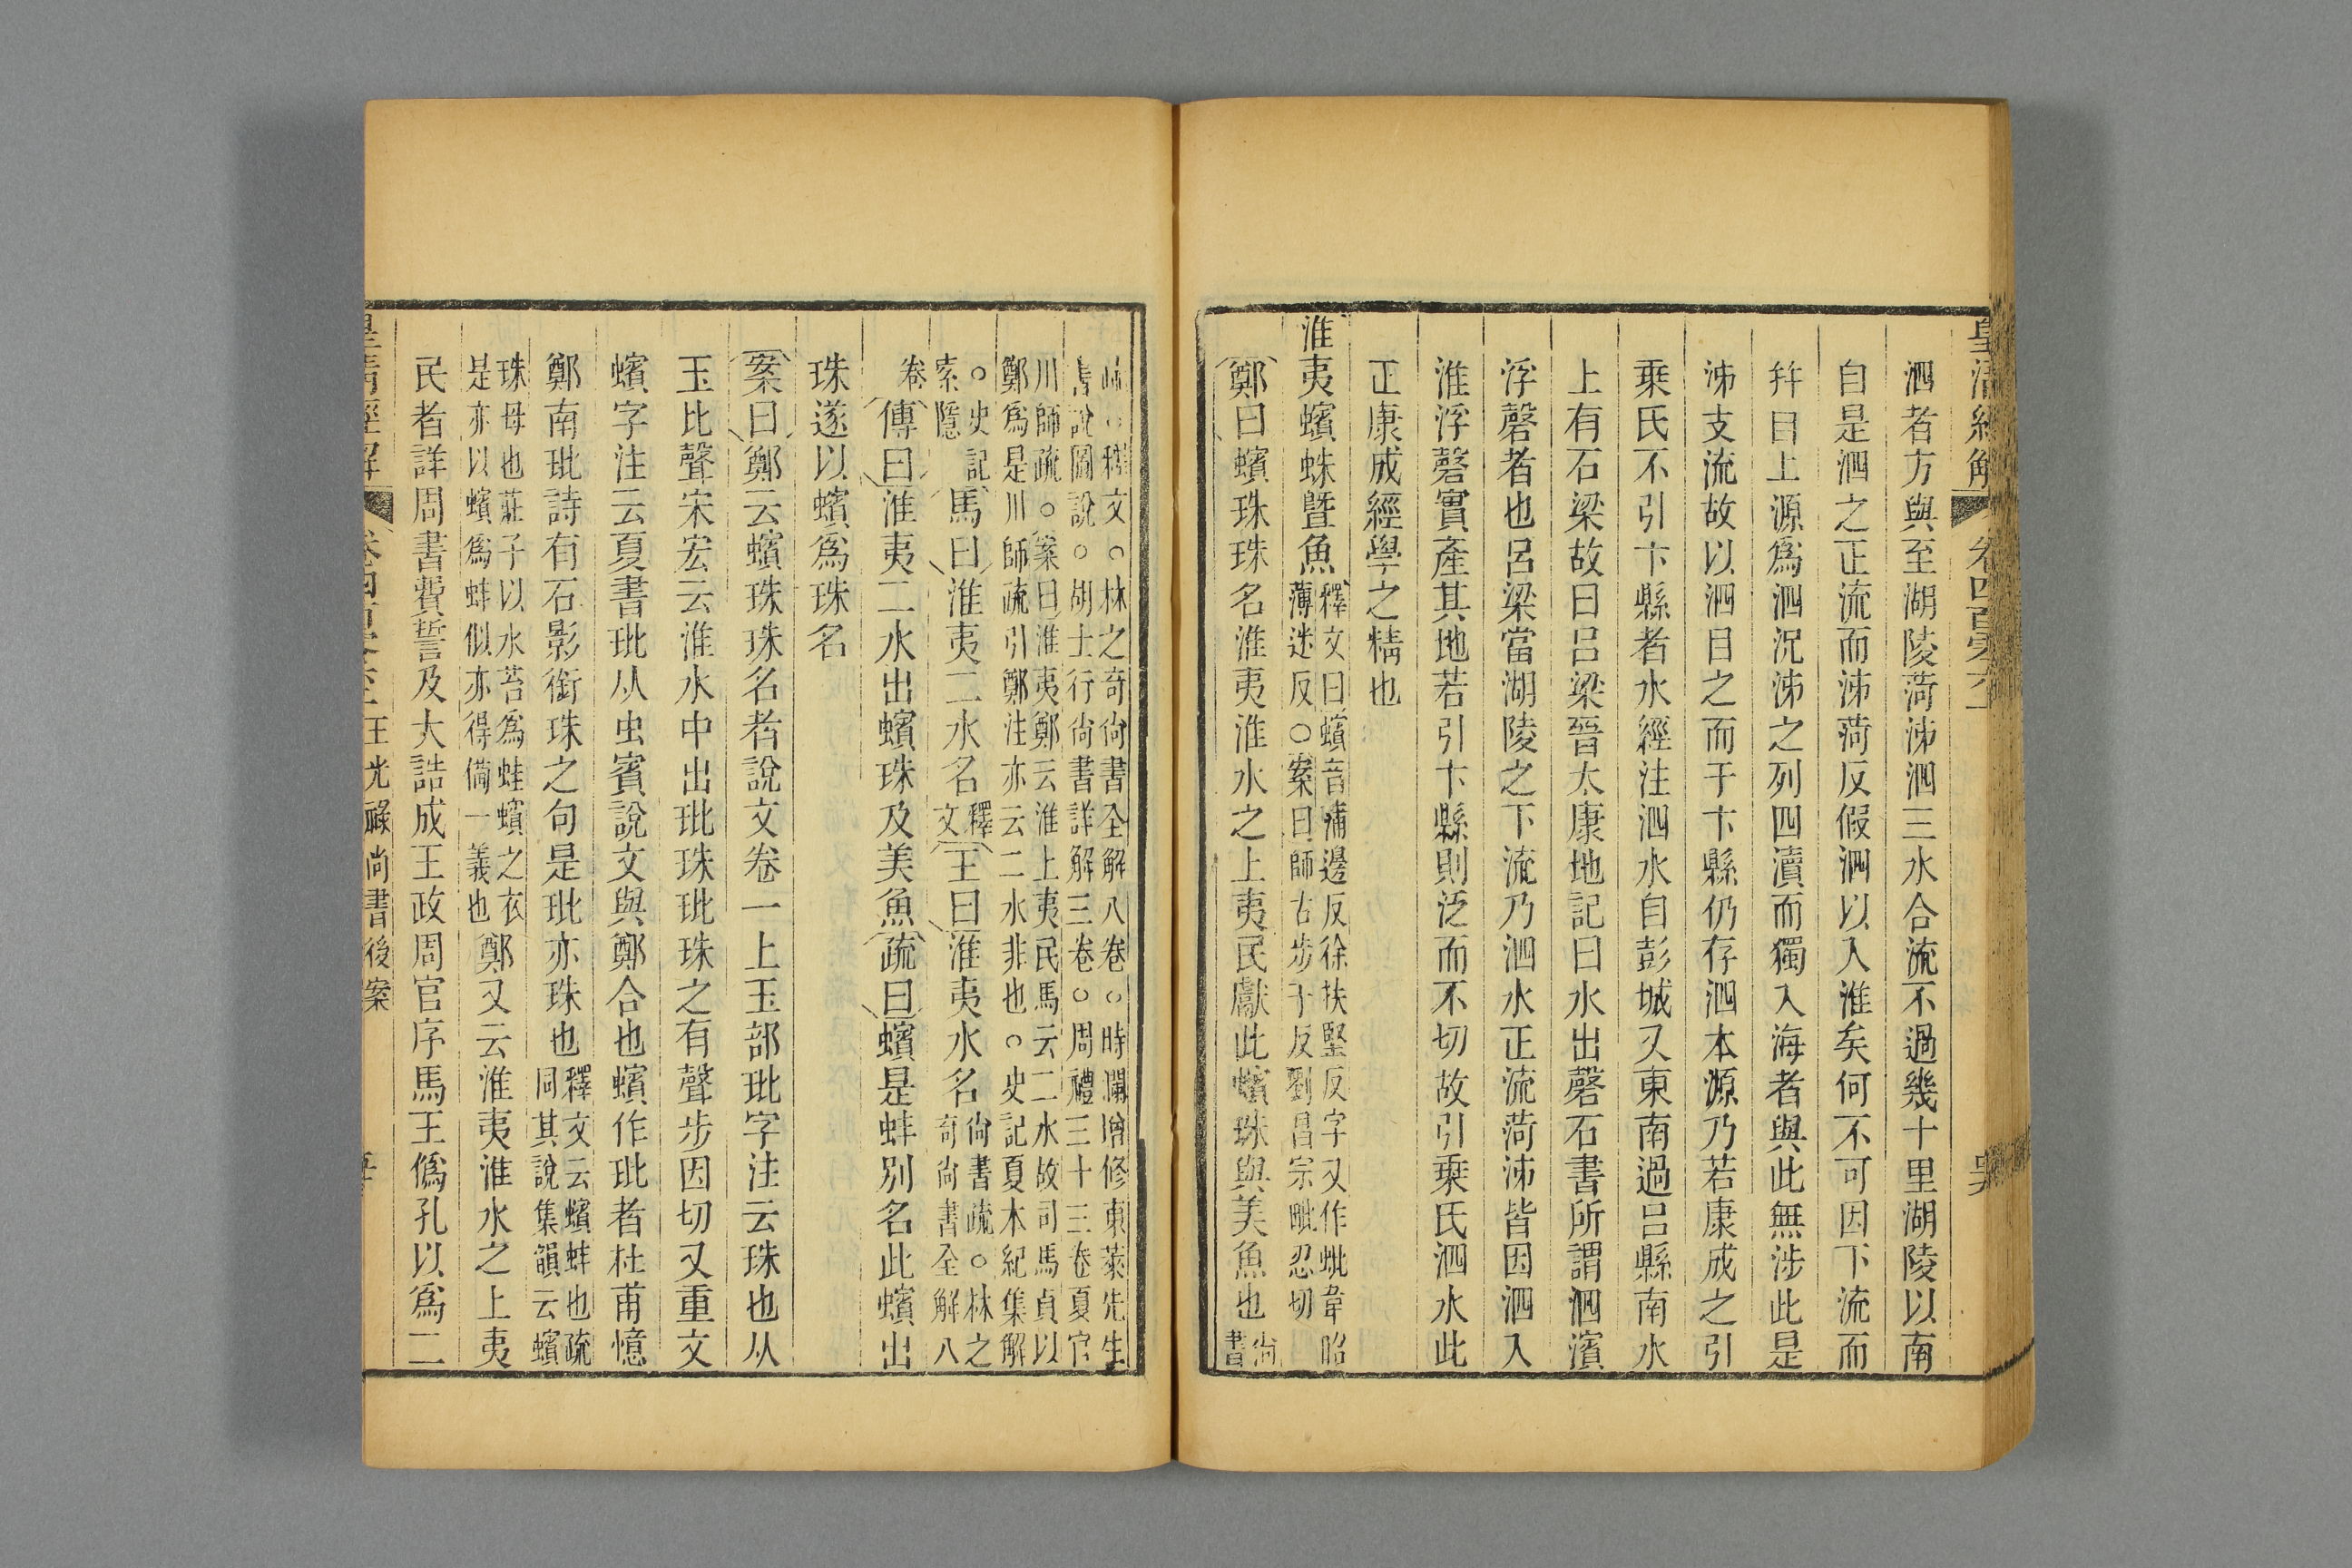 皇清經解
泗者方與至湖陵菏泲泗三水合流不過幾十里湖陵以南
自是泗之正流而泲菏反假泗以入淮矣何不可因下流而
幷目上源爲泗况泲之列四瀆而獨入海者與此無涉此是
泲支流故以泗目之而于卞縣仍存泗本源乃若康成之引
乗氏不引卞縣者水經注泗水自彭城又東南過呂縣南水
上有石梁故曰呂梁晉太康地記曰水出磬石書所謂泗濱
浮磬者也呂梁當湖陵之下流乃泗水正流菏泲皆因泗入
淮浮磬實產其地若引卞縣則泛而不切故引乗氏泗水此
正康成經學之精也
淮夷蠙蛛曁魚釋文曰蠙音蒲邊反徐扶堅反字又作蚍韋昭
薄迷反○案曰師古步千反劉昌宗毗忍切
鄭曰蠙珠珠名淮夷淮水之上夷民獻此蠙珠與美魚也尙
書
疏○釋文○林之奇尙書全解八卷○時瀾增修東萊先生
書說圖說○胡士行尙書詳解三卷○周禮三十三卷夏官
川師疏○案曰淮夷鄭云淮上夷民馬云二水故司馬貞以
鄭爲是川師疏引鄭注亦云二水非也○史記夏本紀集解
○史記
索隱馬曰淮夷二水名釋
文王曰淮夷水名尙書疏○林之
奇尙書全解八
卷傳曰淮夷二水出蠙珠及美魚疏曰蠙是蚌別名此蠙出
珠遂以蠙爲珠名
案曰鄭云蠙珠珠名者說文卷一上玉部玭字注云珠也从
玉比聲宋宏云淮水中出玭珠玭珠之有聲步因切又重文
蠙字注云夏書玭从虫賓說文與鄭合也蠙作玭者杜甫憶
鄭南玭詩有石影銜珠之句是玭亦珠也釋文云蠙蚌也疏
同其說集韻云蠙
珠母也莊子以水苔爲蛙蠙之衣
是亦以蠙爲蚌似亦得備一義也鄭又云淮夷淮水之上夷
民者詳周書費誓及大誥成王政周官序馬王僞孔以爲二
皇清經解 王光祿尙書後案